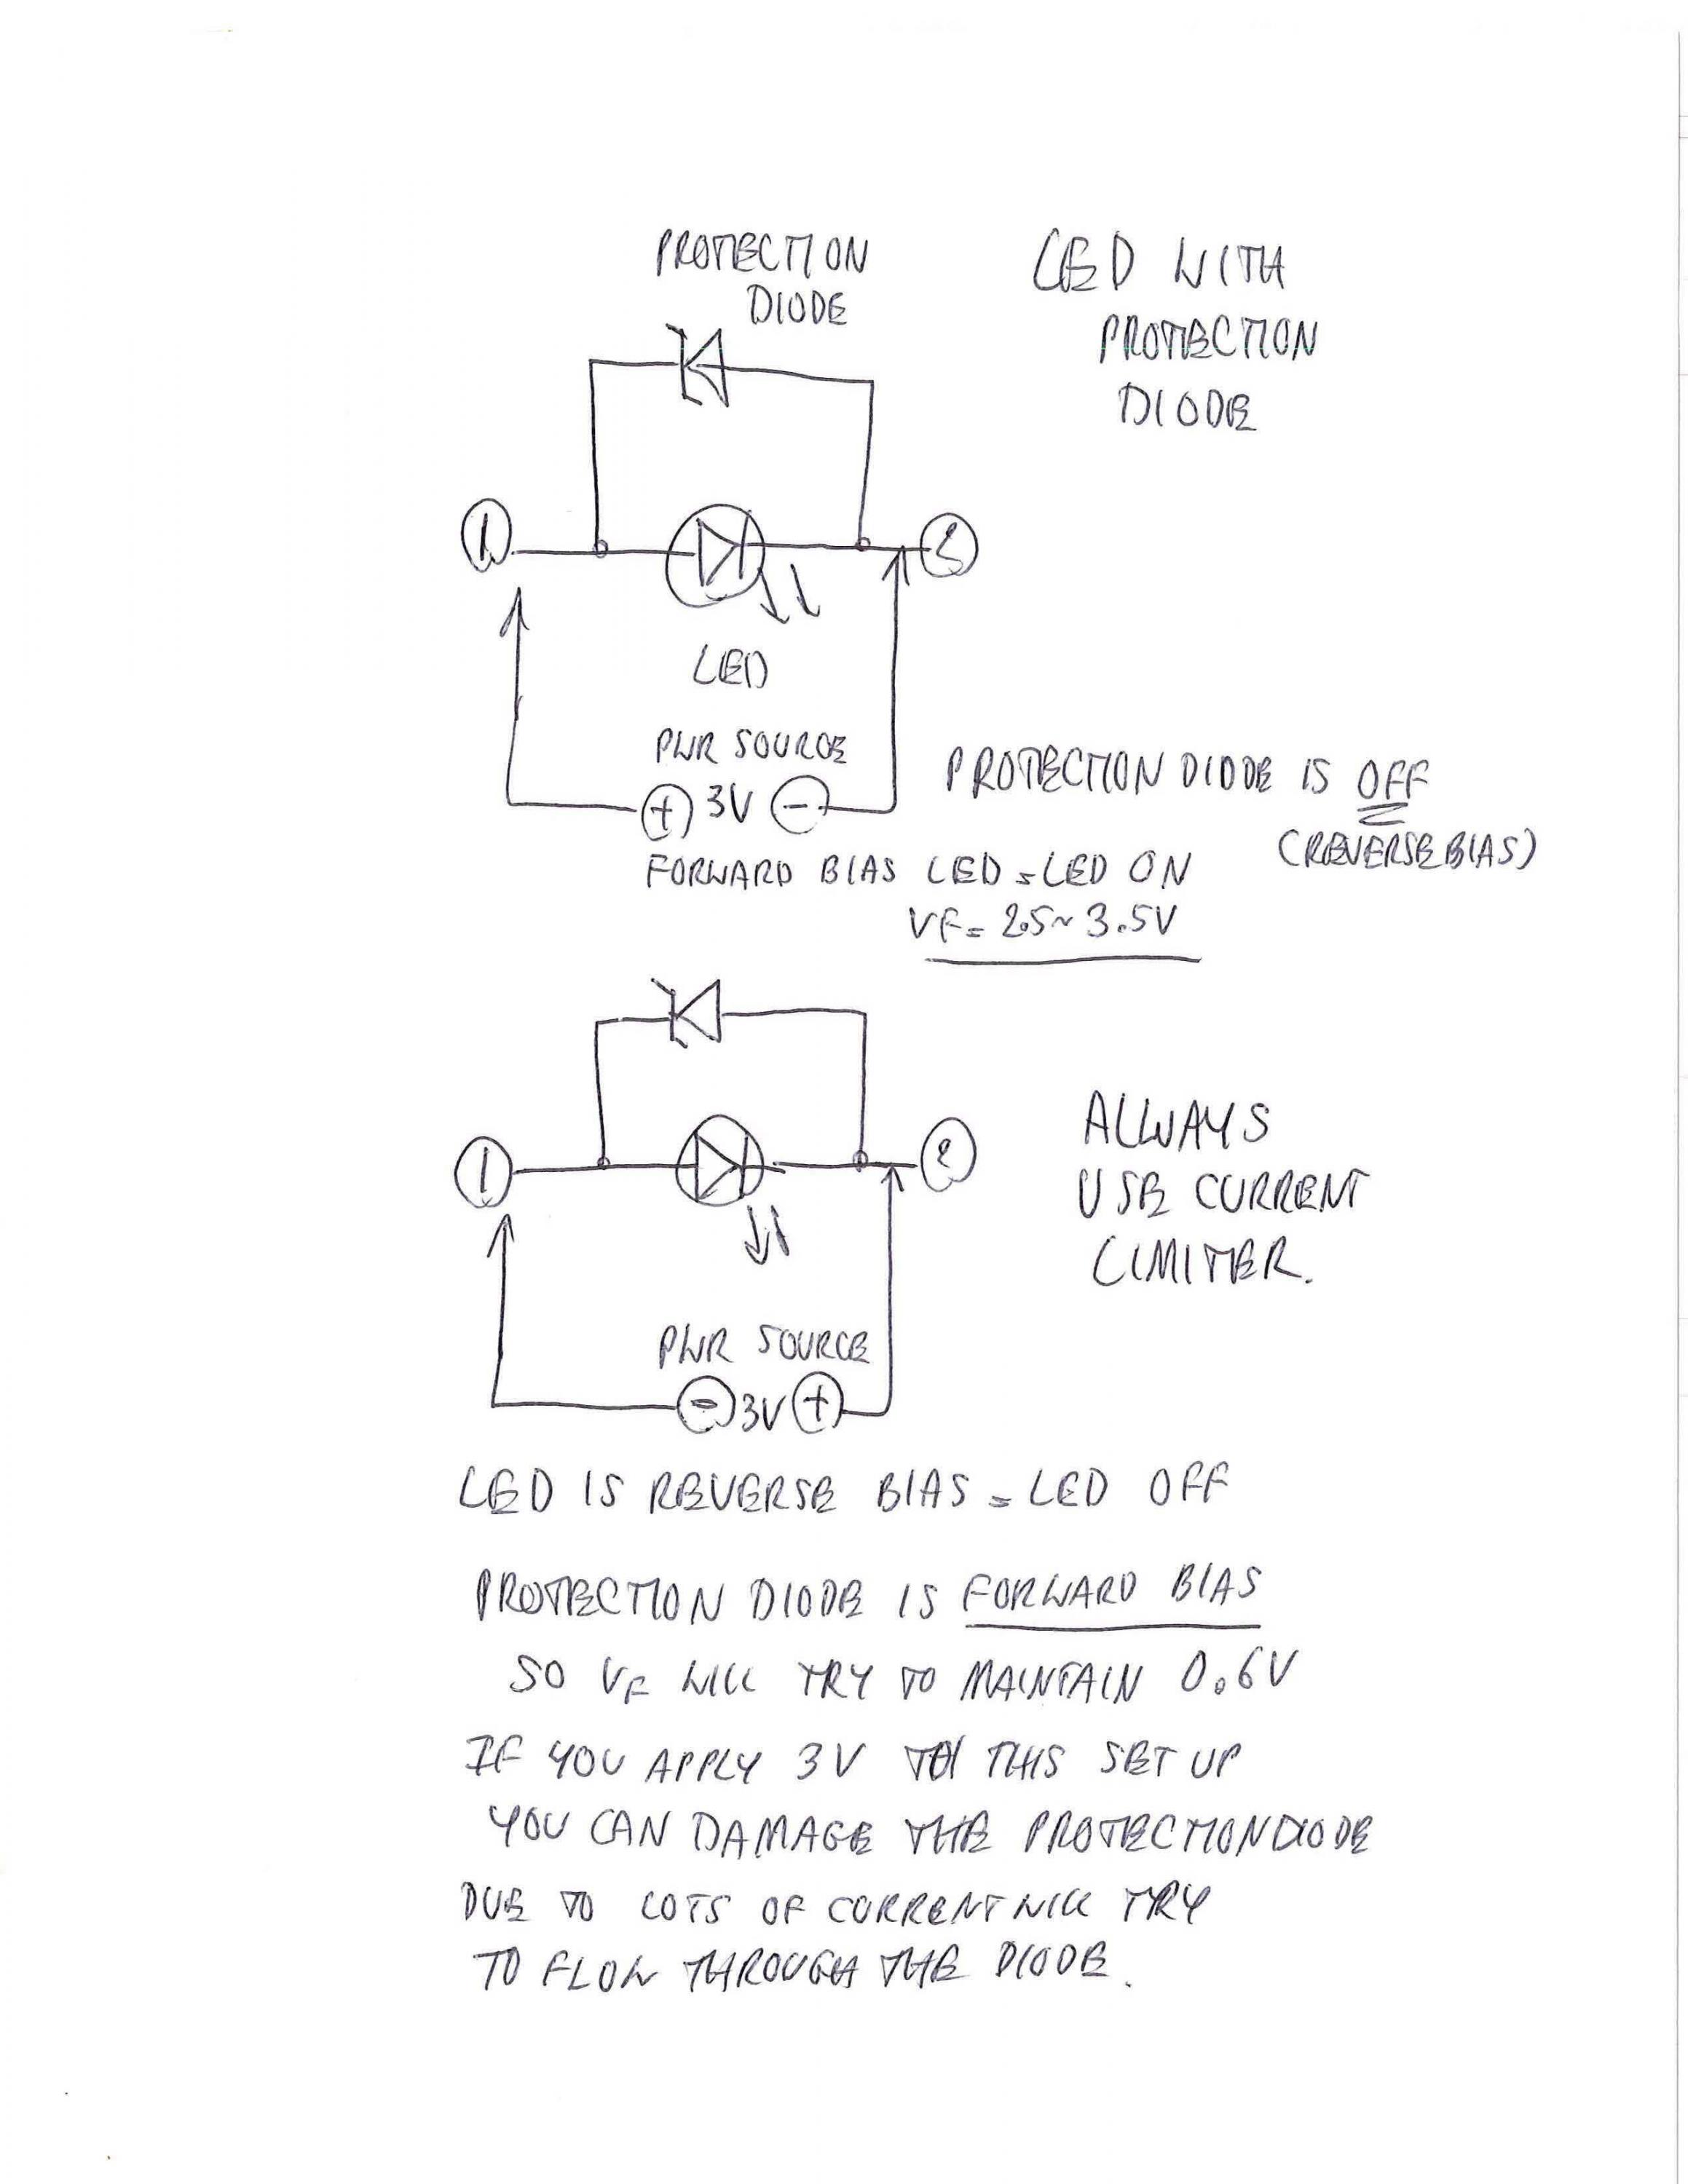 PROTECTION
DIODE
LED WITH
PROTECTION
DIODE
1
2
LED
PWR SOURCE
+ 3V -
PROTECTION DIODE IS OFF
(REVERSE BIAS)
FORWARD BIAS LED = LED ON
VF = 2.5~3.5V
1
2
ALWAYS
USE CURRENT
LIMITER.
PWR SOURCE
- 3V +
LED IS REVERSE BIAS = LED OFF
PROTECTION DIODE IS FORWARD BIAS
SO VF WILL TRY TO MAINTAIN 0.6V
IF YOU APPLY 3V TO THIS SET UP
YOU CAN DAMAGE THE PROTECTION DIODE
DUE TO LOTS OF CURRENT WILL TRY
TO FLOW THROUGH THE DIODE.